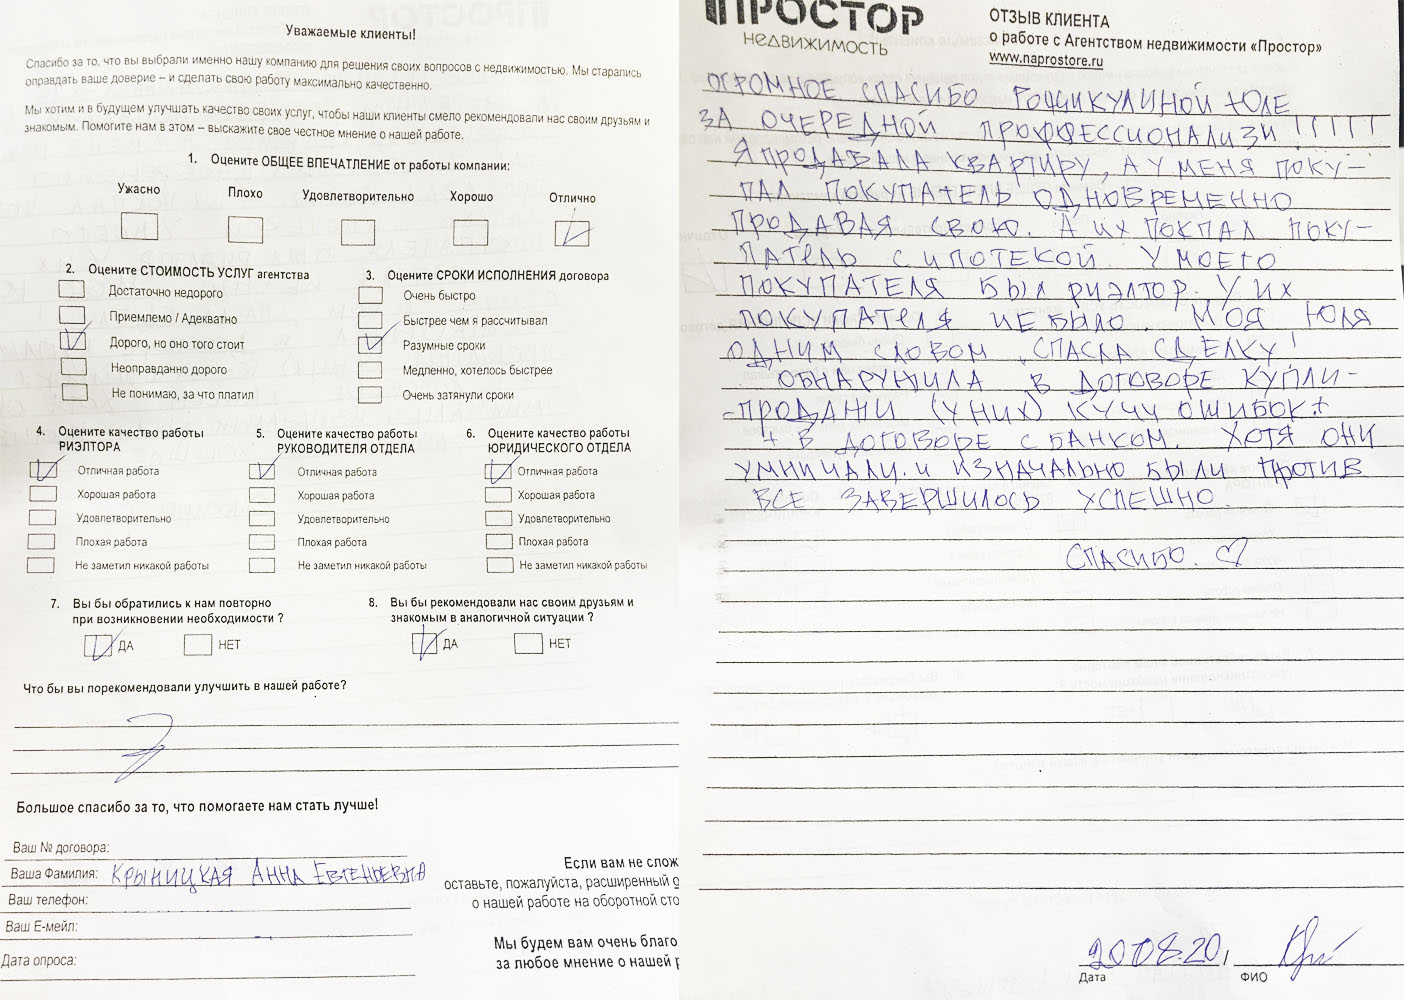 Уважаемые клиенты!
Спасибо за то, что вы выбрали именно нашу компанию для решения своих вопросов с недвижимостью. Мы старались
оправдать ваше доверие – и сделать свою работу максимально качественно.
Мы хотим и в будущем улучшать качество своих услуг, чтобы наши клиенты смело рекомендовали нас своим друзьям и
знакомым. Помогите нам в этом – выскажите свое честное мнение о нашей работе.
1. Оцените ОБЩЕЕ ВПЕЧАТЛЕНИЕ от работы компании:
Ужасно Плохо Удовлетворительно Хорошо Отлично
2. Оцените СТОИМОСТЬ УСЛУГ агентства
Достаточно недорого
Приемлемо / Адекватно
Дорого, но оно того стоит
Неоправданно дорого
Не понимаю, за что платил
3. Оцените СРОКИ ИСПОЛНЕНИЯ договора
Очень быстро
Быстрее чем я рассчитывал
Разумные сроки
Медленно, хотелось быстрее
Очень затянули сроки
4. Оцените качество работы
РИЭЛТОРА
Отличная работа
Хорошая работа
Удовлетворительно
Плохая работа
Не заметил никакой работы
5. Оцените качество работы
РУКОВОДИТЕЛЯ ОТДЕЛА
Отличная работа
Хорошая работа
Удовлетворительно
Плохая работа
Не заметил никакой работы
6. Оцените качество работы
ЮРИДИЧЕСКОГО ОТДЕЛА
Отличная работа
Хорошая работа
Удовлетворительно
Плохая работа
Не заметил никакой работы
7. Вы бы обратились к нам повторно
при возникновении необходимости ?
ДА НЕТ
8. Вы бы рекомендовали нас своим друзьям и
знакомым в аналогичной ситуации ?
ДА НЕТ
Что бы вы порекомендовали улучшить в нашей работе?
Большое спасибо за то, что помогаете нам стать лучше!
Ваш № договора:
Ваша Фамилия: Крыницкая Анна Евгеньевна
Ваш телефон:
Ваш Е-мейл:
Дата опроса:
Если вам не слож
оставьте, пожалуйста, расширенный о
о нашей работе на оборотной сто
Мы будем вам очень благо
за любое мнение о нашей р
ПРОСТОР
недвижимость
ОТЗЫВ КЛИЕНТА
о работе с Агентством недвижимости «Простор»
www.naprostore.ru
ОГРОМНОЕ СПАСИБО РОЩИКУЛИНОЙ ЮЛЕ
ЗА ОЧЕРЕДНОЙ ПРОФФЕССИОНАЛИЗМ !!!!!
Я ПРОДАВАЛА КВАРТИРУ, А У МЕНЯ ПОКУ-
ПАЛ ПОКУПАТЕЛЬ ОДНОВРЕМЕННО
ПРОДАВАЯ СВОЮ. А ИХ ПОКПАЛ ПОКУ-
ПАТЕЛЬ С ИПОТЕКОЙ. У МОЕГО
ПОКУПАТЕЛЯ БЫЛ РИЭЛТОР. У ИХ
ПОКУПАТЕЛЯ НЕ БЫЛО. МОЯ ЮЛЯ
ОДНИМ СЛОВОМ СПАСЛА СДЕЛКУ!
ОБНАРУЖИЛА В ДОГОВОРЕ КУПЛИ-
-ПРОДАЖИ (У НИХ) КУЧУ ОШИБОК +
+ В ДОГОВОРЕ С БАНКОМ. ХОТЯ ОНИ
УМНИЧАЛИ И ИЗНАЧАЛЬНО БЫЛИ ПРОТИВ
ВСЕ ЗАВЕРШИЛОСЬ УСПЕШНО.
СПАСИБО. ♡
20.08.20 /
Дата ФИО